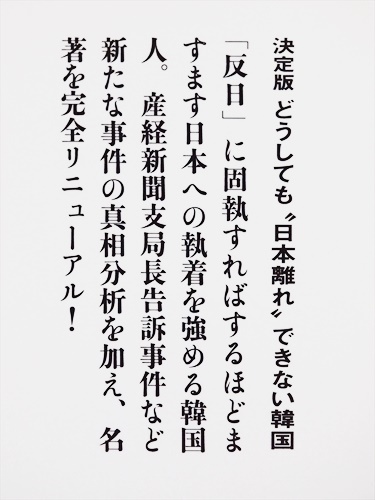 決定版 どうしても〝日本離れ〟できない韓国
「反日」に固執すればするほどま
すます日本への執着を強める韓国
人。産経新聞支局長告訴事件など
新たな事件の真相分析を加え、名
著を完全リニューアル！